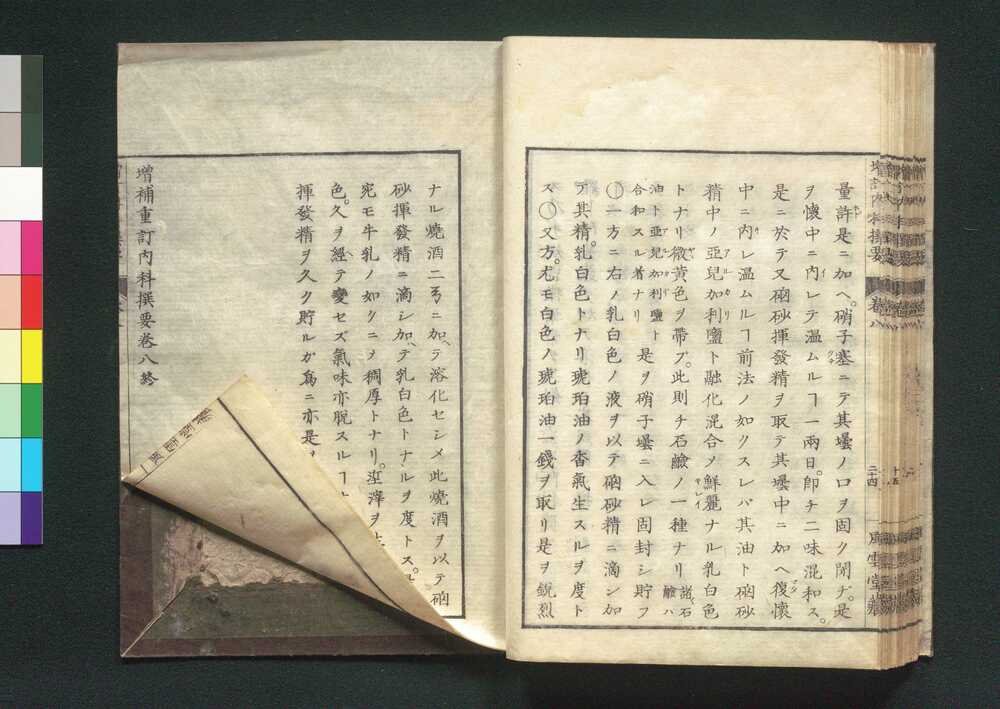 量許是ニ加ヘ。硝子塞ニテ其壜ノ口ヲ固ク閉ヂ。是
ヲ懷中ニ内レテ温ムルヿ一兩日。卽チ二味混和ス。
是ニ於テ又硇砂揮發精ヲ取テ其壜中ニ加ヘ復懷
中ニ内レ温ムルヿ前法ノ如クスレバ其油ト硇砂
精中ノ亞兒加利鹽ト融化混合メ鮮麗ナル乳白色
トナリ微黃色ヲ帶ブ。此則チ石鹼ノ一種ナリ 諸石鹼ハ
油ト亞兒加利鹽ト合和スル者ナリ 是ヲ硝子壜ニ入レ固封シ貯フ
○一方ニ右ノ乳白色ノ液ヲ以テ硇砂精ニ滴シ加
フ其精。乳白色トナリ琥珀油ノ香氣生スルヲ度ト
ス○又方。尤モ白色ノ琥珀油一錢ヲ取リ是ヲ鋭烈
ナル燒酒二ニ加ヘテ溶化セシメ此燒酒ヲ以テ硇
砂揮發精ニ滴シ加ヘテ乳白色トナルヲ度トス。
宛モ牛乳ノ如クニメ稠厚トナリ。滓ヲ
色。久ヲ經テ變セズ氣味亦脱スルヿ
揮發精ヲ久ク貯ルガ爲ニ亦是
增補重訂內科撰要卷八終
卷八
二十四
風雲堂藏